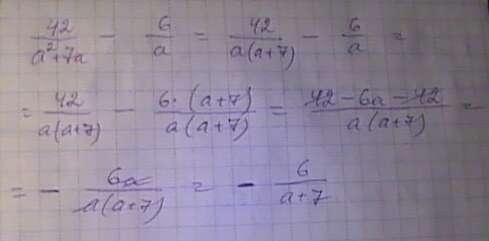 42/(a²+7a) - 6/a = 42/(a(a+7)) - 6/a =
= 42/(a(a+7)) - (6·(a+7))/(a(a+7)) = (42-6a-42)/(a(a+7)) =
= - 6a/(a(a+7)) = - 6/(a+7)